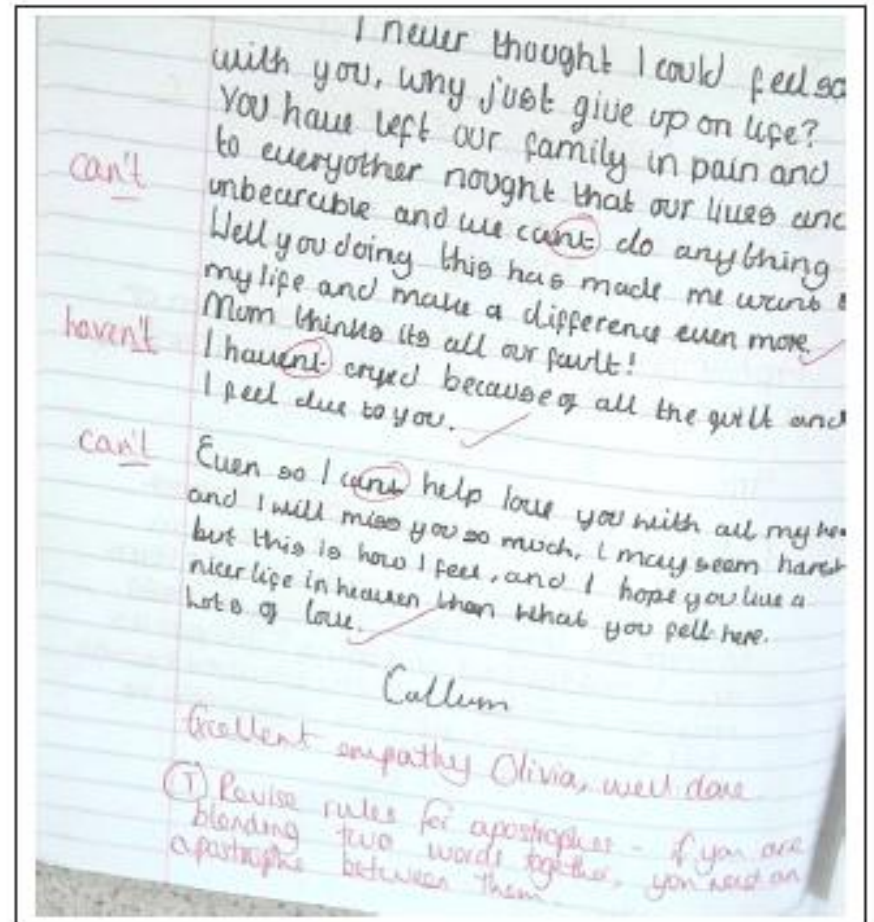 I never thought I could feel so
with you, why just give up on life?
You have left our family in pain and
to everyother nought that our lives and
can't
unbearable and we cant do anything
Well you doing this has made me want
my life and make a difference even more.
Mum thinks its all our fault!
haven't
I havent cryed because of all the guilt and
I feel due to you.
can't
Even so I cant help love you with all my
and I will miss you so much, I may seem harsh
but this is how I feel, and I hope you live a
nicer life in heaven than what you felt here.
Lots of love.
Callum
Excellent empathy Olivia, well done
T Revise rules for apostrophes - if you are
blending two words together, you need an
apostrophe between them